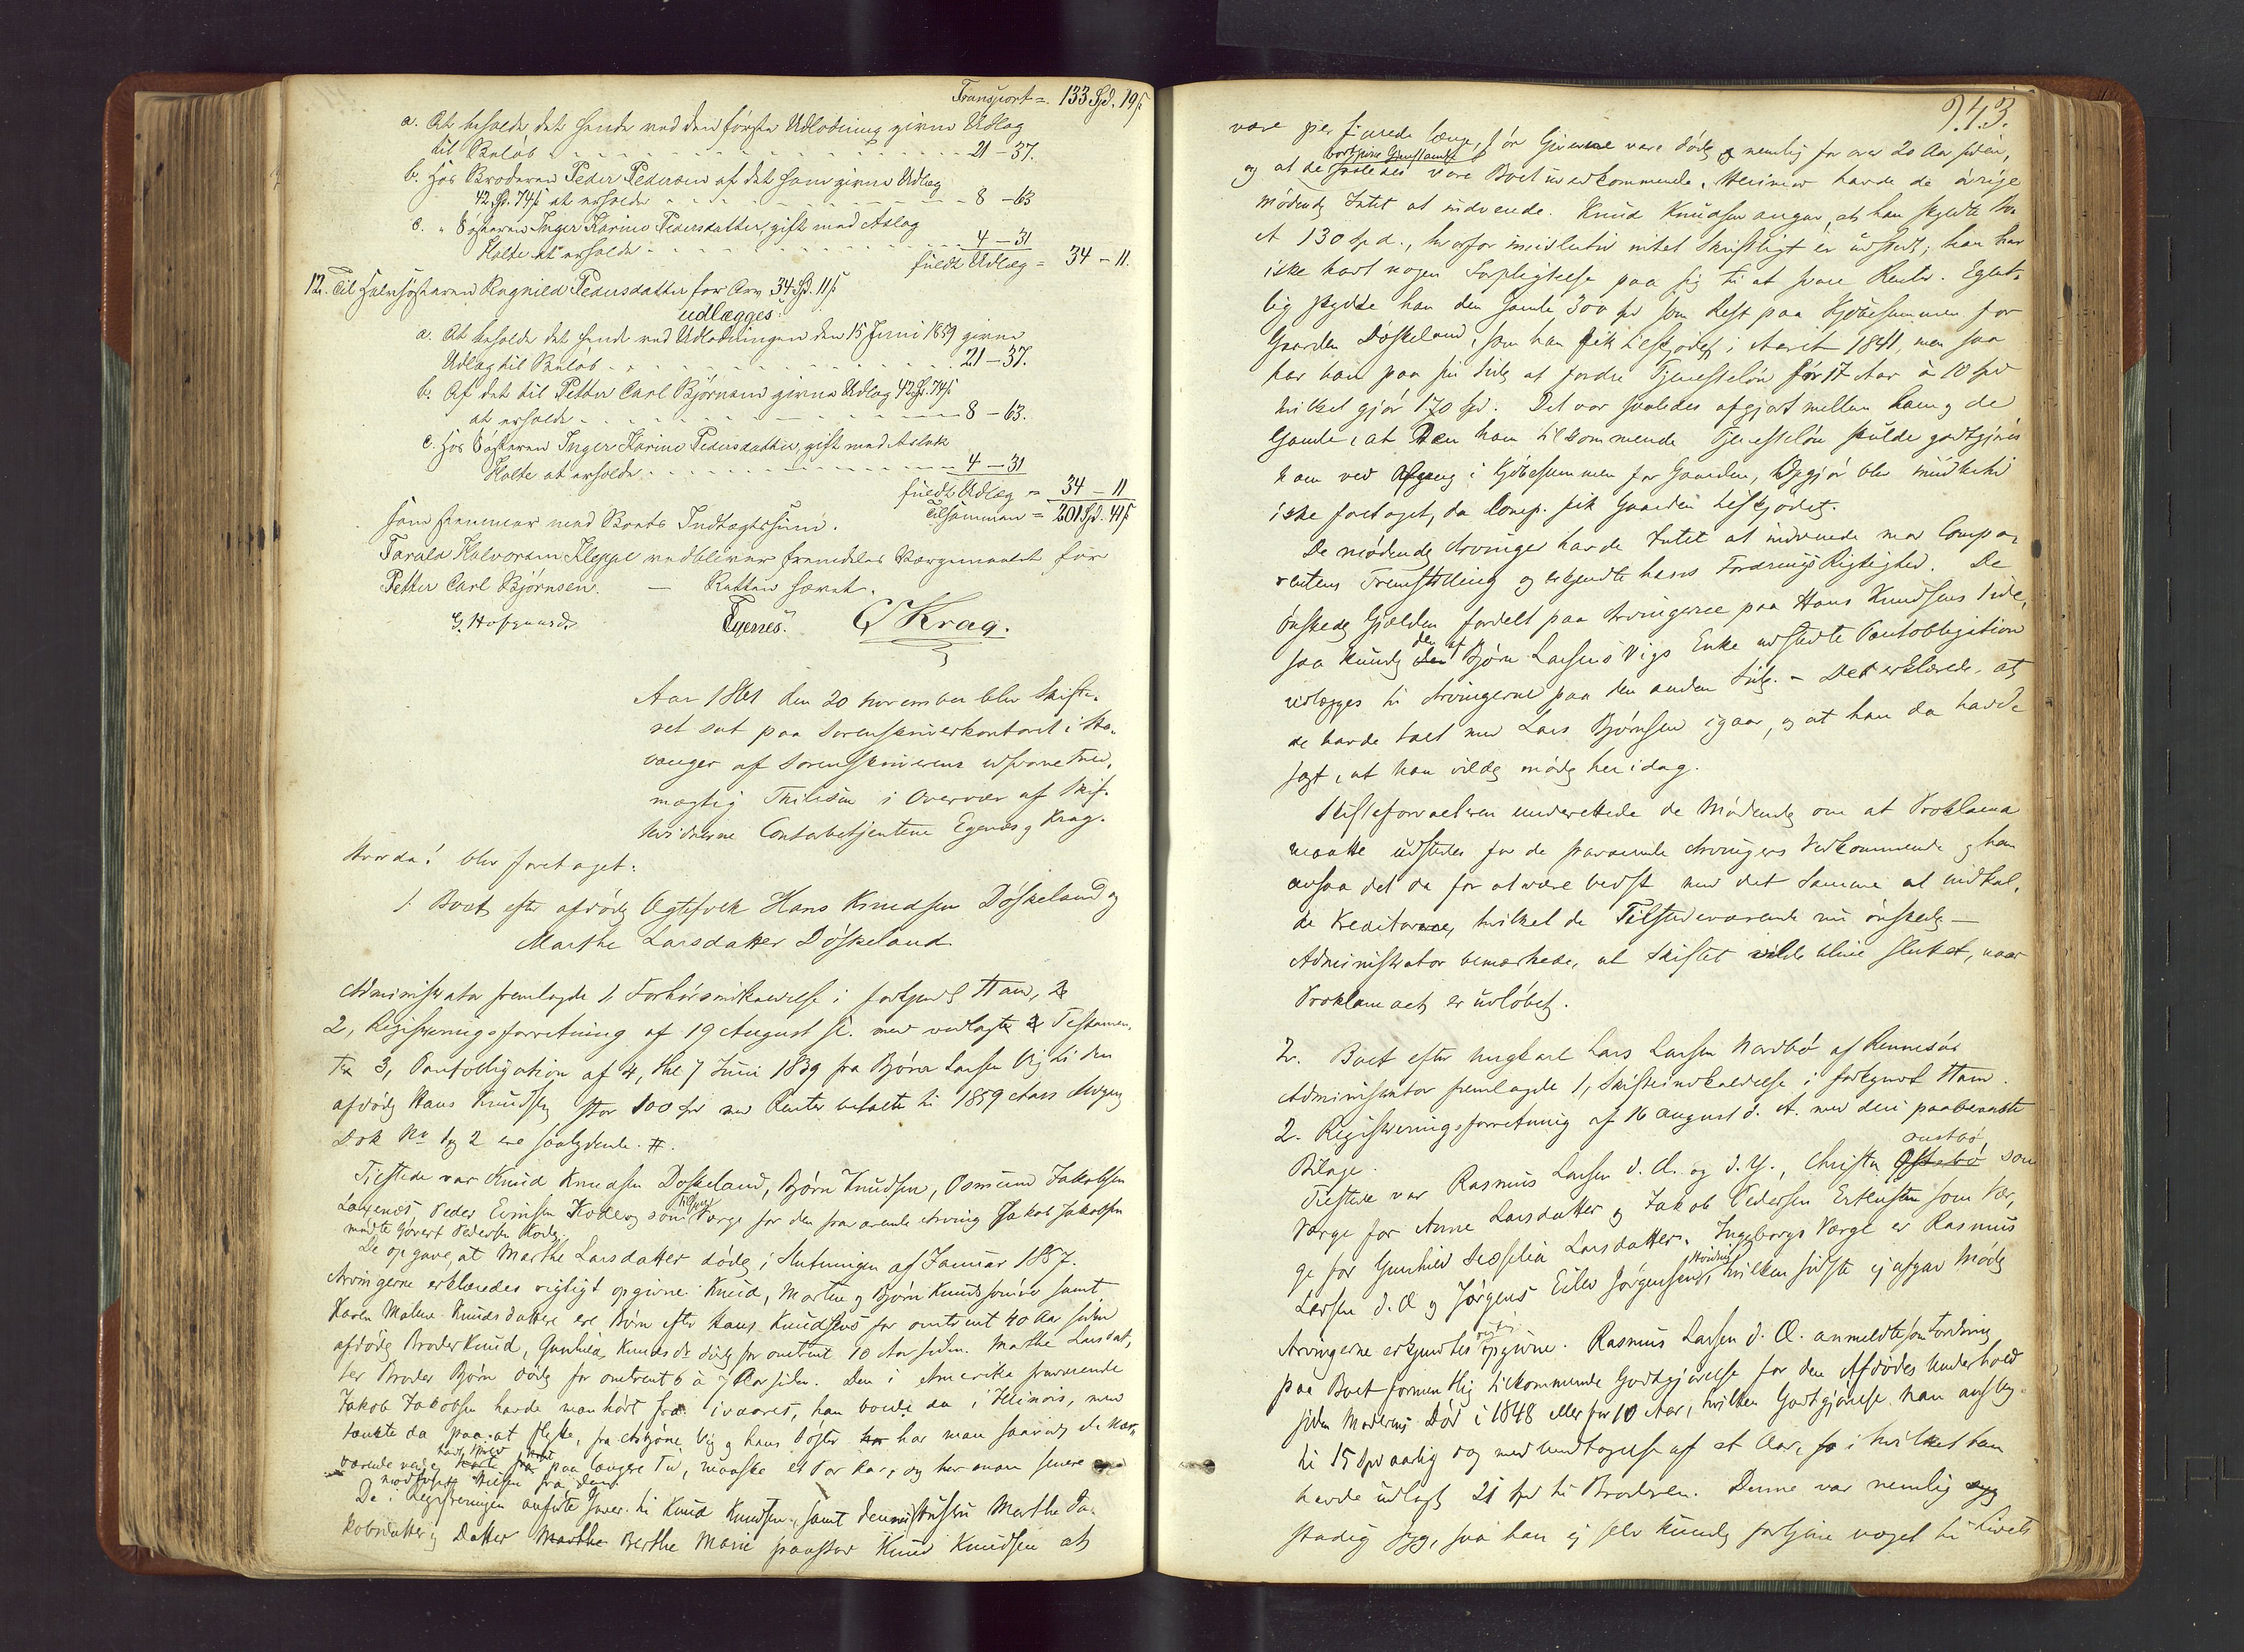 Transport = 133 Spd. 19ſ
a. At beholde det hende ved den förste Udlodning givne Udlæg
til Beløb 21 - 37.
b. Hos Broderen Peder Pedersen af det ham givne Udlæg
42 Spd. 74ſ at erholde 8 - 63
c. " Søsteren Inger Karine Pedersdatter, gift med Aslag
Holte at erholde 4 - 31
fuldt Udlæg = 34 - 11.
12. Til Halvsøsteren Ragnild Pedersdatter for Arv 34 Spd. 11ſ
udlægges:
a. At beholde det hende ved Udlodningen den 15 Juni 1859 givne
Udlæg til Beløb 21 - 37.
b. Af det til Petter Carl Bjørnsen givne Udlæg 42 Spd. 74ſ
at erholde 8 - 63.
c. Hos Søsteren Inger Karine Pedersdatter, gift med Aslak
Holte at erholde 4 - 31
fuldt Udlæg = 34 - 11
Tilsammen = 201 Spd. 41ſ
som stemmer med Boets Indtægtssum.
Tarald Halvorsen Kleppe vedbliver fremdeles Værgemaalet for
Petter Carl Bjørnsen. — Retten hævet.
G. Hofgaard Egenes. Krag.
Aar 1861 den 20 November blev Skifte-
ret sat paa Sorenskriverkontoret i Sta-
vanger af Sorenskriverens Fuld-
mægtig i Overvær af Skif-
tevidnerne Contorbetjentene Egenes og Krag.
Hvorda! blev foretaget:
1. Boet efter afdøde Ægtefolk Hans Knudsen Döskeland og
Marthe Larsdatter Döskeland.
Administrator fremlagde 1, Forhørsindkaldelse i forkyndt Stand,
2, Registreringsforretning af 19 August sl. med vedlagte Testamen-
te 3, Pantobligation af 4, thl 7 Juni 1839 fra Bjørn Larsen Vig til den
afdøde Hans Knudsen stor 100 Spd med Renter betalte til 1859 Aars Udgang
Dok No 1 og 2 ere saalydende. #.
Tilstede var Knud Knudsen Doskeland, Bjørn Knudsen, Osmund Jakobsen
Peder Evinsen Kodey som Værge for den fraværende Arving Jakob Jakobsen
mødte Govert Pedersen Kode.
De opgave, at Marthe Larsdatter døde i Slutningen af Januar 1857.
Arvingerne erklæredes rigtigt opgivne. Knud, Morten og Bjørn Knudssønner samt
Karen Malene Knudsdatter ere Børn efter Hans Knudsens for omtrent 40 Aar siden
afdøde Broder Knud, Gunhild Knudsdr døde for omtrent 10 Aar siden. Marthe Larsdat-
ters Broder Bjørn døde for omtrent 6 à 7 Aar siden. Den i Amerika fraværende
Jakob Jakobsen havde man hørt fra ivaares, han boede da i Illinois, men
tænkte da paa at flytte, fra Asbjørn Vig og hans Søster har man saavidt de
værende paa længere Tid, maaske et Par Aar, og har man senere
modtaget Hilsen fra dem.
De i Registreringen anførte Gaver til Knud Knudsen, samt dennes Hustru Marthe Ja-
kobsdatter og Datter Berthe Marie paastod Knud Knudsen at
243.
være givne længe, før Giverne vare døde og nemlig for over 20 Aar siden,
og at de bortgivne Gjenstande vare Boet uvedkommende. Herimod havde de øvrige
mødende Intet at indvende. Knud Knudsen angav, at han skyldte Bo-
et 130 Spd., hvorfor imidlertid intet Skriftligt er udstedt; han har
ikke havt nogen Forpligtelse paa sig til at svare Renter. Egent-
lig skyldte han den Gamle 300 Spd som Rest paa Kjøbesummen for
Gaarden Döskeland, som han fik tilskjødet i Aaret 1841, men saa
har han paa sin Side at fordre Tjenesteløn for 17 Aar à 10 Spd
hvilket gjør 170 Spd. Det var saaledes afgjort mellem ham og de
Gamle, at den ham tilkommende Tjenesteløn skulde godtgjøres
ham ved Afgang i Kjøbesummen for Gaarden, Opgjør blev imidlertid
ikke foretaget, da Comp. fik Gaarden tilskjødet.
De mødende Arvinger havde Intet at indvende mod Compa-
rentens Fremstilling og erkjendte hans Fordrings Rigtighed. De
ønskede Gjælden fordelt paa Arvingerne paa Hans Knudsens Side,
saa kunde den af Bjørn Larsens Vigs Enke udstedte Pantobligation
udlægges til Arvingerne paa den anden Side. - Det erklærede, at
de havde talt med Lars Bjørnsen igaar, og at han da havde
sagt, at han vilde møde her idag.
Skifteforvalteren underrettede de Mødende om at Proklama
maatte udstedes for de fraværende Arvingers Vedkommende og han
ansaa det da for at være bedst med det Samme at indkal-
de Kreditorerne, hvilket de Tilstedeværende nu ønskede —
Administrator bemærkede, at Skiftet vilde blive sluttet, naar
Proklamaet er udløbet.
2. Boet efter Ungkarl Lars Larsen Nordbø af Rennesø
Administrator fremlagde 1, Skifteindkaldelse i forkyndt Stand.
2. Registreringsforretning af 16 August d. A. med den paaberaabte
Bilage.
Tilstede var Rasmus Larsen d. Æ. og d. Y., Christen Austbø, som
Værge for Anne Larsdatter og Jakob Pedersen som Vær-
ge for Gunhild Larsdatter. Ingeborgs Værge er Rasmus
Larsen d. Æ og Jørgens Eilev Jørgensen, hvilken sidste ej afgav Møde
Arvingerne erkjendtes rigtig opgivne. Rasmus Larsen d. Æ. anmeldte som Fordring
paa Boet formentlig tilkommende Godtgjørelse for den Afdødes Underhold
siden Moderens Død i 1848 eller for 10 Aar, hvilken Godtgjørelse han anslog
til 15 Spd aarlig og med Undtagelse af et Aar, i hvilket han
havde udlagt 21 Spd til Broderen. Denne var nemlig
stadig syg, saa han ej selv kunde fortjene noget til Livets